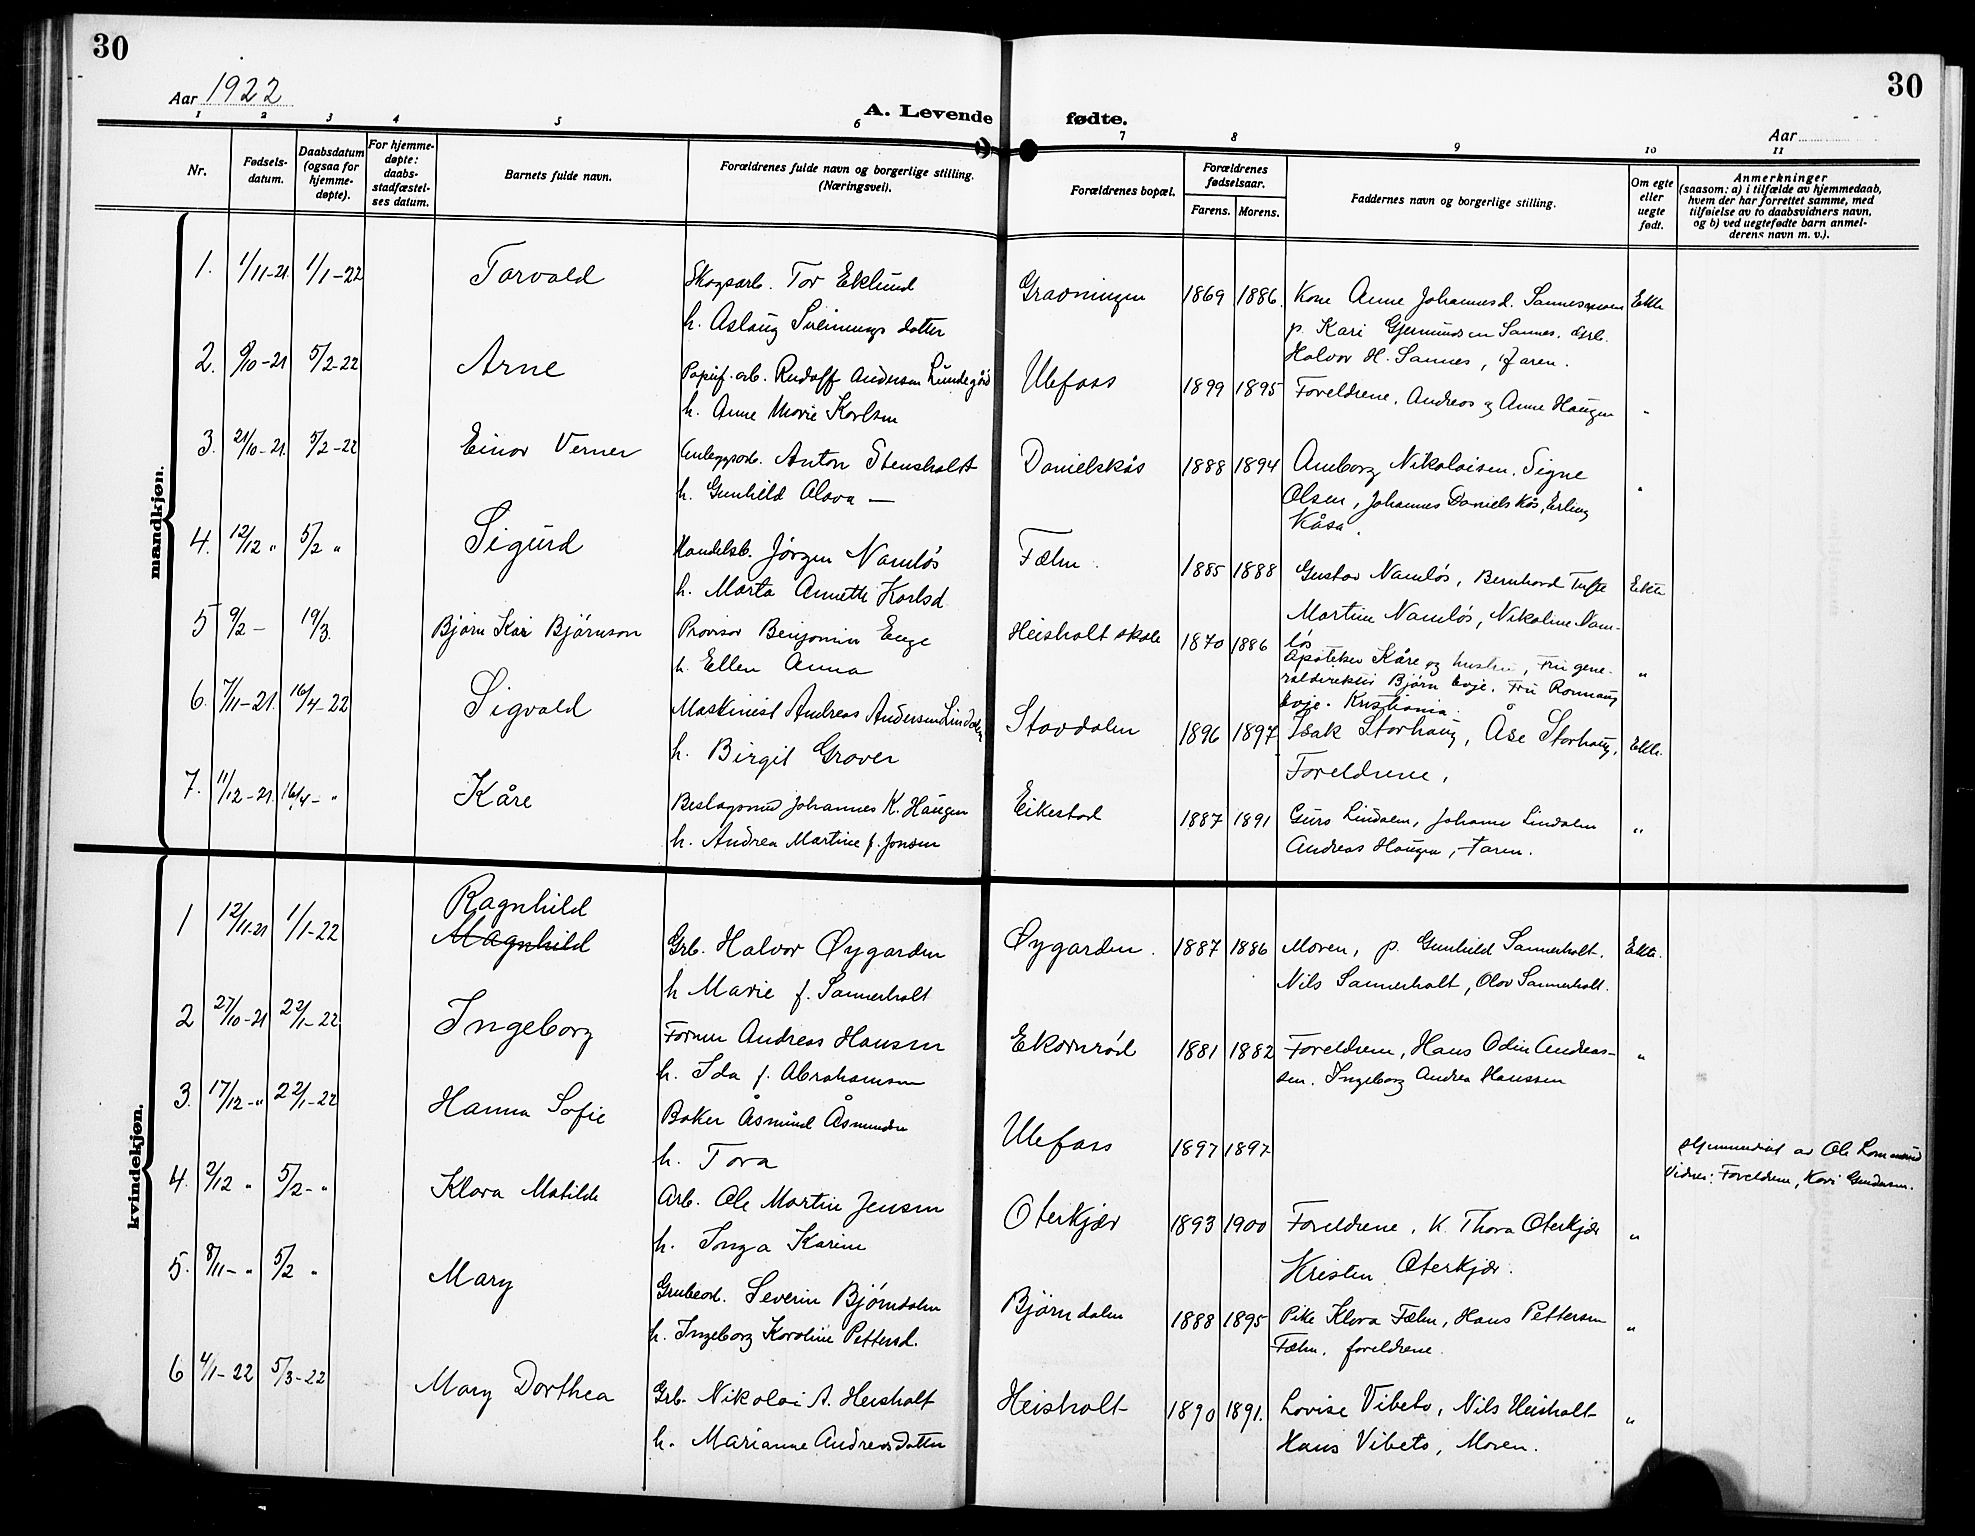 30
30
Aar 1922
A. Levende fødte.
Aar
1 2 3 4 5 6 7 8 9 10 11
Nr.
Fødsels-
datum.
Daabsdatum
(ogsaa for
hjemme-
døpte).
For hjemme-
døpte:
daabs-
stadfæstel-
ses datum.
Barnets fulde navn.
Forældrenes fulde navn og borgerlige stilling.
(Næringsvei).
Forældrenes bopæl.
Forældrenes
fødselsaar.
Farens. Morens.
Faddernes navn og borgerlige stilling.
Om egte
eller
uegte
født.
Anmerkninger
(saasom: a) i tilfælde av hjemmedaab,
hvem der har forrettet samme, med
tilføielse av to daabsvidners navn,
og b) ved uegtefødte barn anmel-
derens navn m. v.).
mandkjøn.
1. 1/11-21 1/1-22 Torvald Skogsarb. Tor Eklund Gravningen 1869 1886. Kone Anne Johannesd. Sannesmoen Ekte
h. Aslaug Sveinungsdatter p. Kari Gjermundsen Sannes,
Halvor H. Sannes, Faren.
2. 9/10-21 5/2-22 Arne Papirf. arb. Rudolf Andersen Lundegård Ulefoss 1899 1895 Foreldrene, Andreas og Anne Haugen "
h. Anne Marie Karlsen
3. 21/10-21 5/2-22 Einar Verner Anleggsarb. Anton Stensholdt Danielskås 1888 1894 Amborg Nikolaisen, Signe "
h. Gunhild Olava — Olsen, Johannes Danielskås, Erling
Kåsa.
4. 12/12 " 5/2 " Sigurd Handelsb. Jørgen Namløs Fæhn 1885 1888 Gustav Namløs, Bernhard Tufte Ekte
h. Marta Annette Karlsd Martine Namløs, Nikoline Nam-
løs
5 9/2 – 19/3. Bjørn Kåi Bjørnson Provisor Benjamin Enge Heisholt skole 1870 1886 Apoteker Kåre og hustru, Fru gene- "
h. Ellen Anna raldirektør Bjørn Evje. Fru Ronnaug
Evje. Kristiania.
6. 7/11-21. 16/4-22 Sigvald Maskinest Andreas Andersen Lindalen Stavdalen 1896 1897 Isak Storhaug, Åse Storhaug, Ekte.
h. Birgit Graver Foreldrene,
7. 11/12-21. 16/4- " Kåre Beslagsmed Johannes K. Haugen Eikestad 1887 1891 Guro Lindalen, Johanne Lindalen "
h. Andrea Martine f. Jonsen Andreas Haugen, Faren.
kvindekjøn.
Ragnhild
1 12/11-21 1/1-22 Magnhild Grb. Halvor Øygarden Øygarden. 1887 1886 Moren, p. Gunhild Sannerholt, Ekte.
h Marie f. Sannerholt Nils Sannerholt, Olav Sannerholt.
2 27/10-21 22/1-22 Ingeborg Former Andreas Hansen Ekornrød 1881 1882 Foreldrene, Hans Odin Andreas- "
h. Ida f. Abrahamsen sen. Ingeborg Andrea Hanssen
3. 17/12-" 22/1-22 Hanna Sofie Baker Åsmund Åsmundsen Ulefoss 1897 1897 Hjemmedøpt av Ole Romnes
h. Tora Vidner: Foreldrene, Kari Gundersen.
4. 2/12 " 5/2-" Klara Matilde Arb. Ole Martin Jensen Oterkjær 1893 1900 Foreldrene, K. Thora Oterkjær "
h. Inga Karine Kristen Oterkjær.
5. 8/11-" 5/2 " Mary Grubearb. Severin Bjørndalen Bjørndalen 1888 1895 Pike Klara Fæhn, Hans Pettersen "
h. Ingeborg Karoline Pettersd. Fæhn, foreldrene.
6 4/1-22 5/3-22 Mary Dorthea Grb. Nikolai A. Heisholt Heisholt 1890 1891. Lovise Vibeto, Nils Heisholt "
h. Marianne Andreasdatter Hans Vibeto, Moren.